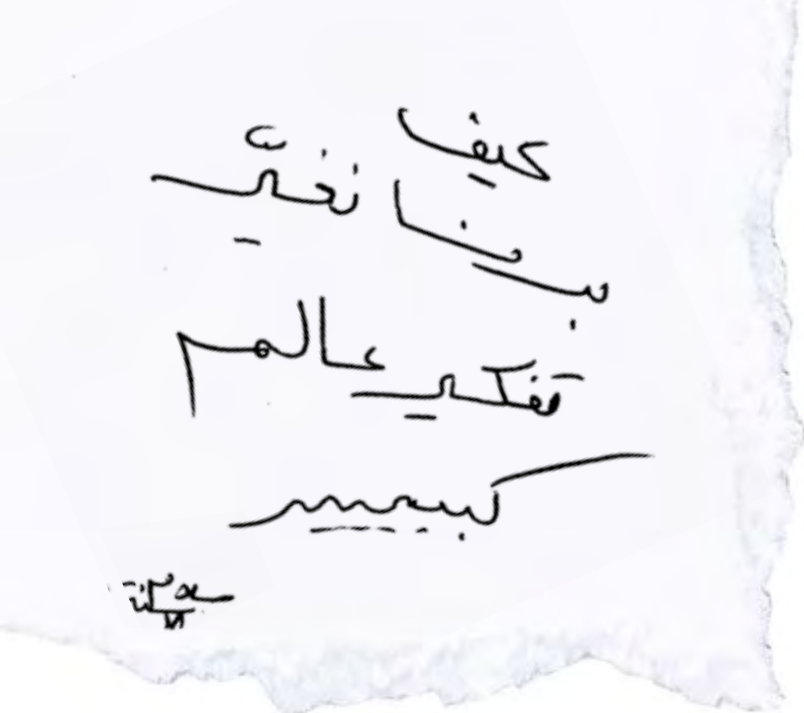 كيف
بينا نغيّر
تفكير عالم
كبيييير